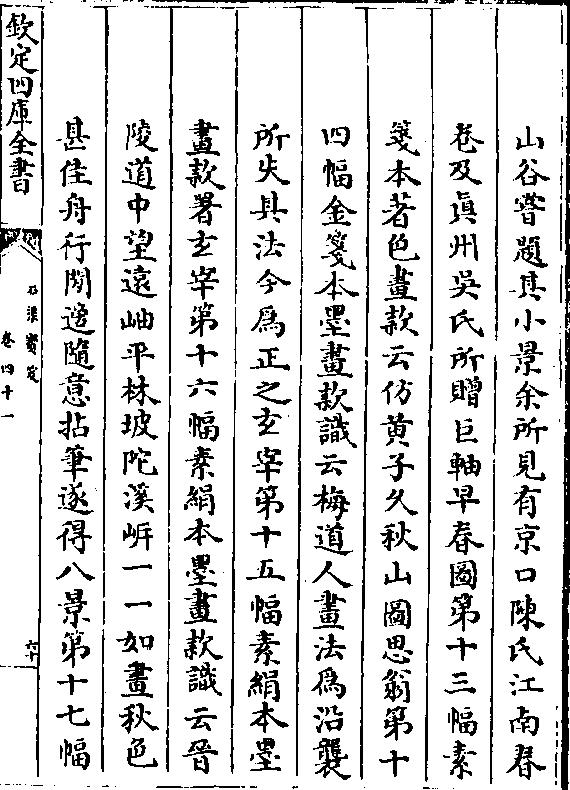 山谷嘗題其小景余所見有京口陳氏江南春
卷及眞州吳氏所贈巨軸早春圖第十三幅素
箋本著色畫款云仿黄子久秋山圖思翁第十
四幅金箋本墨畫款識云梅道人畫法爲沿襲
所失其法今爲正之玄宰第十五幅素絹本墨
畫款署玄宰第十六幅素絹本墨畫款識云晉
陵道中望遠岫平林坡陀溪㟁一一如畫秋色
甚佳舟行閒適隨意拈筆遂得八景第十七幅
欽定四庫全書
石渠寳笈
卷四十一
六十